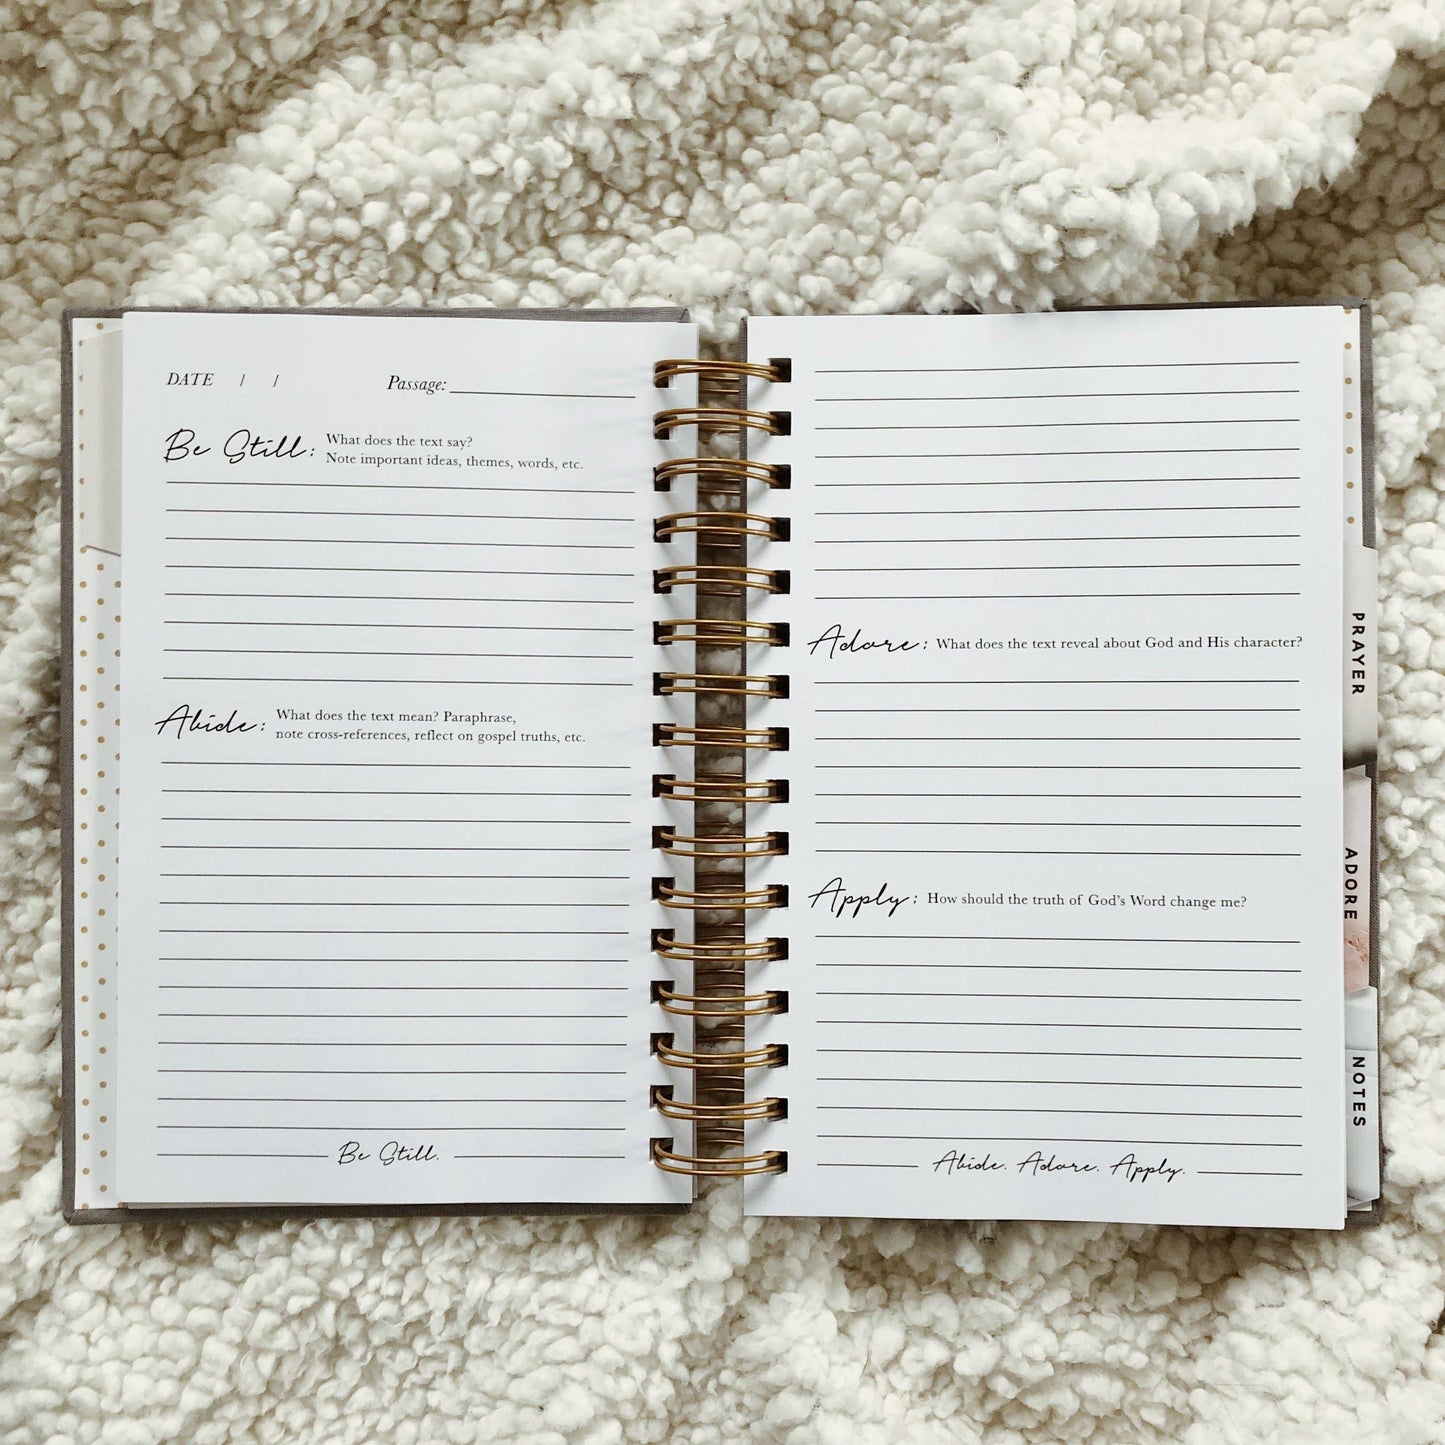 DATE / / Passage:
Be Still: What does the text say?
Note important ideas, themes, words, etc.
Abide: What does the text mean? Paraphrase,
note cross-references, reflect on gospel truths, etc.
Be Still.
Adore: What does the text reveal about God and His character?
Apply: How should the truth of God's Word change me?
Abide. Adore. Apply.
PRAYER
ADORE
NOTES